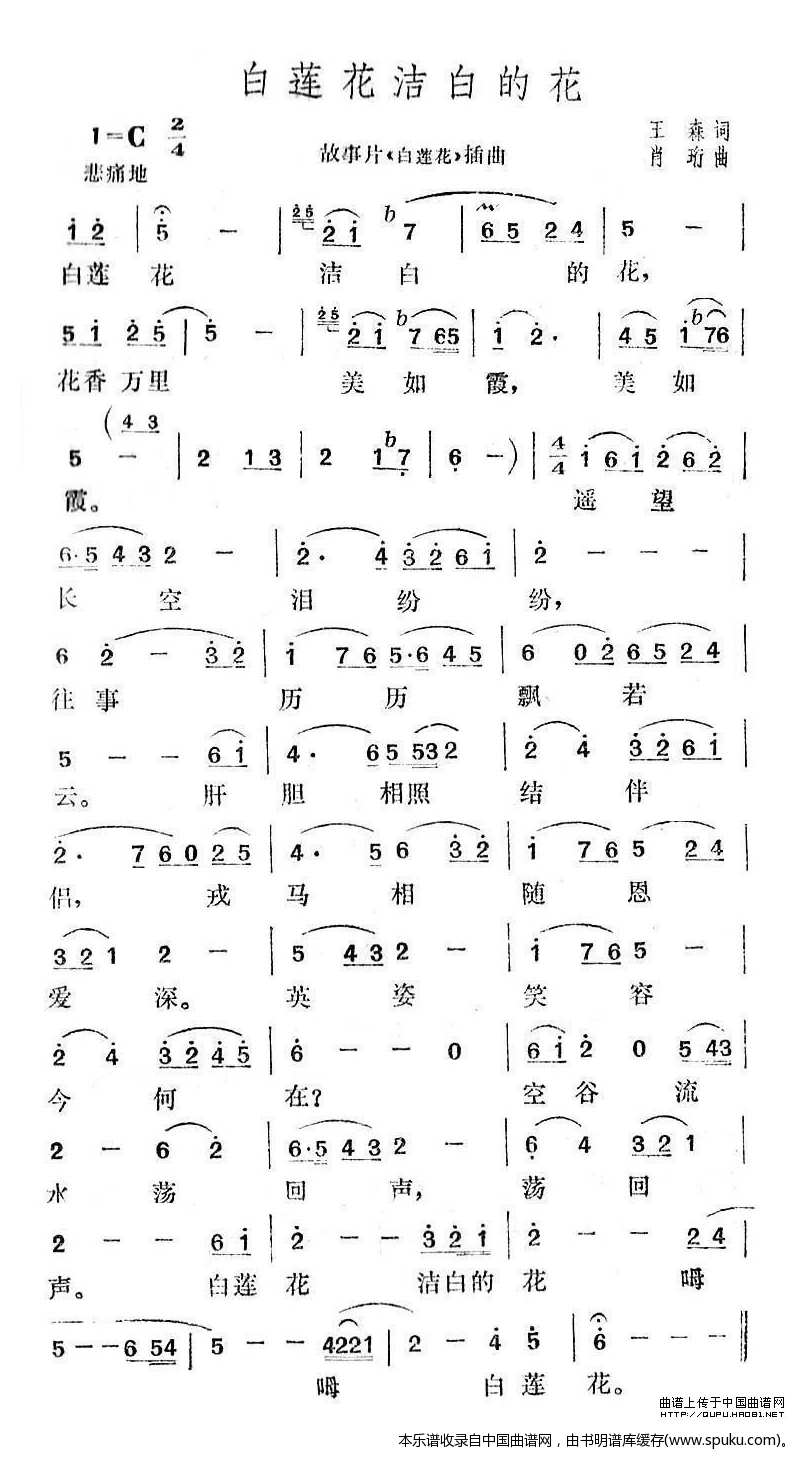 白莲花洁白的花
1=C 2/4
故事片《白莲花》插曲
王森词
肖珩曲
悲痛地
1 2 | 5 — | 25 2 1 b7 | 6 5 2 4 | 5 — |
白莲 花 洁 白 的 花，
5 1 2 5 | 5 — | 25 2 1 b7 65 | 1 2 · | 4 5 b1 76 |
花香 万里 美 如 霞， 美 如
(4 3
5 — | 2 1 3 | 2 1 b7 | 6 —) | 4/4 1 6 1 2 6 2 |
霞。 遥 望
6·5 4 3 2 — | 2· 4 3 2 6 1 | 2 — — — |
长 空 泪 纷 纷，
6 2 — 3 2 | 1 7 6 5·6 4 5 | 6 0 2 6 5 2 4 |
往 事 历 历 飘 若
5 — — 6 1 | 4· 6 5 53 2 | 2 4 3 2 6 1 |
云。 肝 胆 相照 结 伴
2· 7 6 0 2 5 | 4· 5 6 3 2 | 1 7 6 5 2 4 |
侣， 戎 马 相 随 恩
3 2 1 2 — | 5 4 3 2 — | 1 7 6 5 — |
爱 深。 英 姿 笑 容
2 4 3 2 4 5 | 6 — — 0 | 6 1 2 0 5 43 |
今 何 在？ 空 谷 流
2 — 6 2 | 6·5 4 3 2 — | 6 4 3 2 1 |
水 荡 回 声， 荡 回
2 — — 6 1 | 2 — — 3 2 1 | 2 — — 2 4 |
声。 白莲 花 洁白的 花 呣
5 — — 6 54 | 5 — — 4221 | 2 — 4 5 | 6 — — — ‖
呣 白 莲 花。
曲谱上传于中国曲谱网
HTTP://QUPU.HAO81.NET
本乐谱收录自中国曲谱网，由书明谱库缓存(www.spuku.com)。